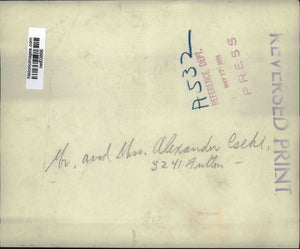 historicimages.com
A532
REFERENCE DEPT.
MAY 17 1931
PRESS
REVERSED PRINT
Mr. and Mrs. Alexander Csehl,
3241 Fulton -